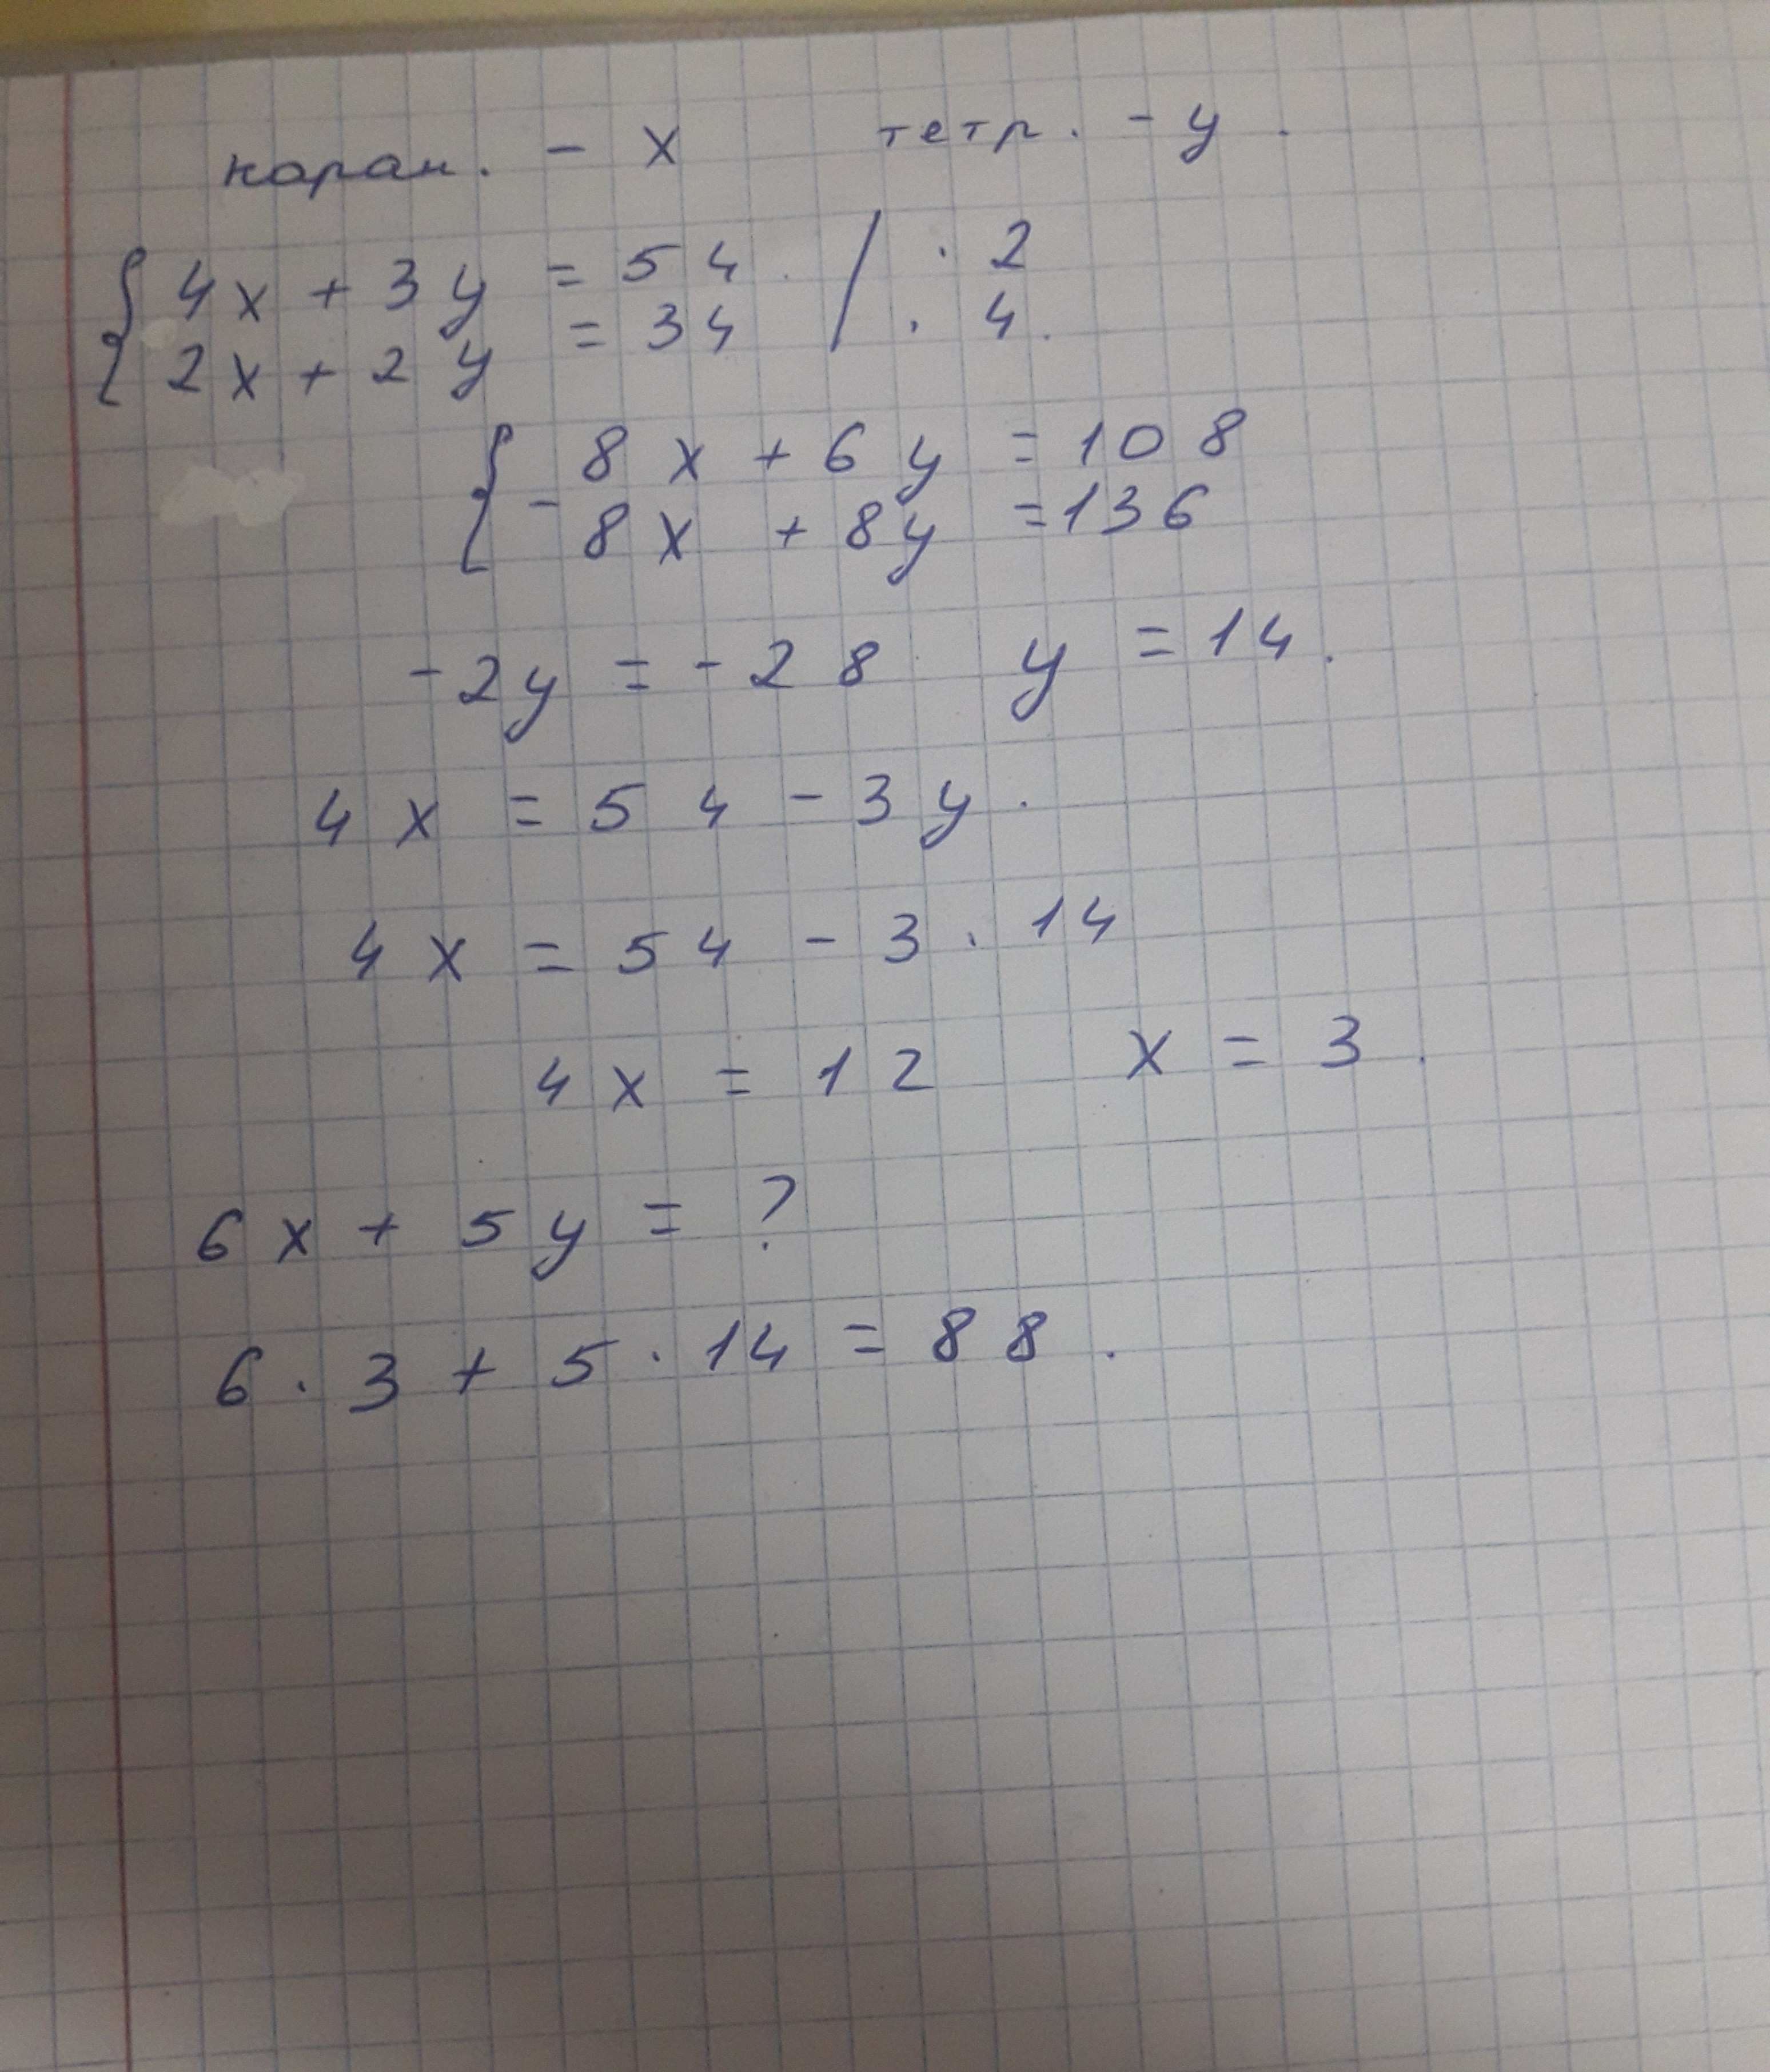 каран. - x тетр. - y.
{ 4x + 3y = 54 / · 2
2x + 2y = 34 / · 4.
{ - 8x + 6y = 108
8x + 8y = 136
-2y = -28 y = 14.
4x = 54 - 3y.
4x = 54 - 3 · 14
4x = 12 x = 3.
6x + 5y = ?
6 · 3 + 5 · 14 = 88.